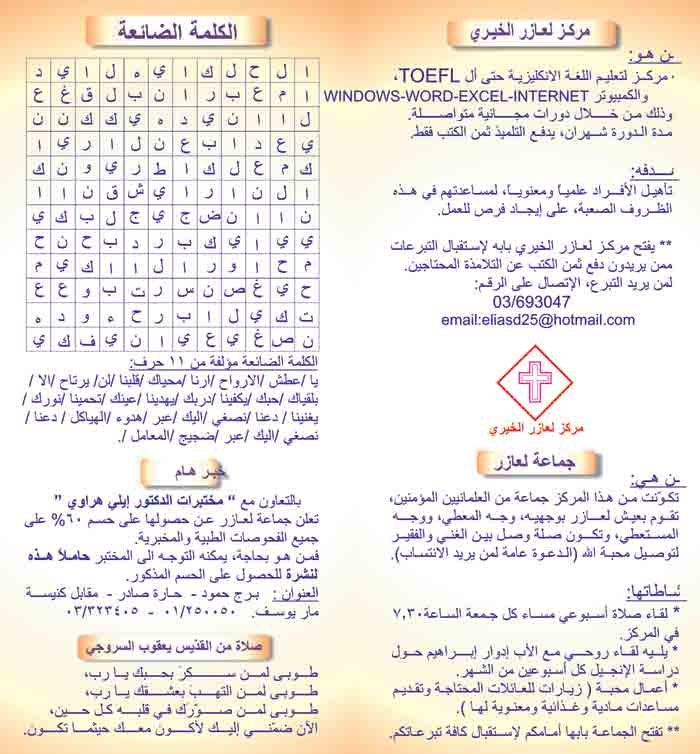 مركز لعازر الخيري
ـن هـو:
· مركـز لتعليـم اللغـة الانكليزيـة حتى أل TOEFL،
والكمبيوتر WINDOWS-WORD-EXCEL-INTERNET
وذلك مـن خـــلال دورات مجــانية متواصــلـة.
مـدة الـدورة شهـران، يـدفـع التلميـذ ثمـن الكتب فقـط.
ـدفه:
تـأهيـل الأفــراد علميـاً ومعنويـاً، لمسـاعدتهـم في هـذه
الظـروف الصعبـة، على إيجـاد فـرص للعمل.
** يفتـح مركـز لعـازر الخيري بابـه لإستقبـال التبرعـات
ممن يريدون دفـع ثمـن الكتـب عن التلامذة المحتاجين.
لمن يريد التبرع، الإتصـال على الرقـم:
03/693047
email:eliasd25@hotmail.com
مركز لعازر الخيري
جماعة لعازر
ـن هـي:
تكـوّنت مـن هـذا المركز جماعـة من العلمانيين المؤمنين،
تقـوم بعيـش لعـازر بوجهيـه، وجـه المعطـي، ووجــه
المستعـطي، وتكـون صـلة وصـل بيـن الغنـي والفقيـر
لتوصيل محبـة الله (الـدعوة عامة لمن يريد الانتساب).
شاطاتها:
* لقـاء صلاة أسبـوعي مسـاء كل جـمعة الساعة ٧,٣٠
في المركز.
* يليـه لقـاء روحـي مـع الأب إدوار إبـراهيم حـول
دراسـة الإنجيـل كـل أسبـوعين من الشهـر.
* أعمـال محبـة ( زيـارات للعائـلات المحتاجـة وتقديم
مسـاعدات ماديـة وغـذائيـة ومعنويـة لهـا ).
** تفتح الجماعـة بابها أمامكم لإستقبـال كافة تبرعاتكم.
الكلمة الضائعة
ا ل ح ل ك ا ي ه ل ا ي د
ا م ع ب ر ا ن ب ل ق غ ع
ل ا ا ن ي د ه ي ك ك ن ن
ي ع د ا ب ع ن ل ا ر ي ا
ك م ع ل ك ا ط ر ي و ن ك
ا ل ن ا ر ا ي ش ق ن ا ا
ن ا ا ن ض ج ي ج ل ب ك ي
ي ي ا ي ك ب ر د ب ح ن ح
م ح ا و ر ا ل ا ا ك ي م
ح ي غ ص ن س ر ت ب و ع ع
ت ك ي ل ا ب ر ح ء و د ه
ن ص غ ي ع ي ا ن ي ف ك ي
الكلمة الضائعة مؤلفة من ١١ حرف:
يا /عطش /الارواح /ارنا /محياك /قلبنا /لن/ يرتاح /الا /
بلقياك /حبك /يكفينا /دربك /يهدينا /عينك /تحمينا /نورك /
يغنينا / دعنا /نصغي /اليك /عبر /هدوء /الهياكل / دعنا /
نصغي /اليك /عبر /ضجيج /المعامل /.
خبـر هـام
بالتعاون مع “ مختبرات الدكتور إيلي هراوي ”
تعلن جماعة لعازر عـن حصولها على حسم ٦٠% على
جميع الفحوصات الطبية والمخبرية.
فمـن هـو بحاجـة، يمكنه التوجـه الى المختبر حامـلاً هـذه
لنشرة للحصول على الحسم المذكور.
العنوان : بـرج حمود - حارة صادر - مقابل كنيسـة
مار يوسـف. ٠١/٢٥٠٠٥٠ - ٠٣/٣٢٣٤٠٥
صلاة من القدّيس يعقوب السروجي
طـوبـى لمـن سـكـر بحبـك يـا رب،
طـوبـى لمـن التهـبَ بعشـقـك يـا رب،
طـوبـى لمـن صـوّرك فـي قلبـه كـل حيـن،
الآن ضمّنـي إليـك لأكـون معـك حيثمـا تكـون.